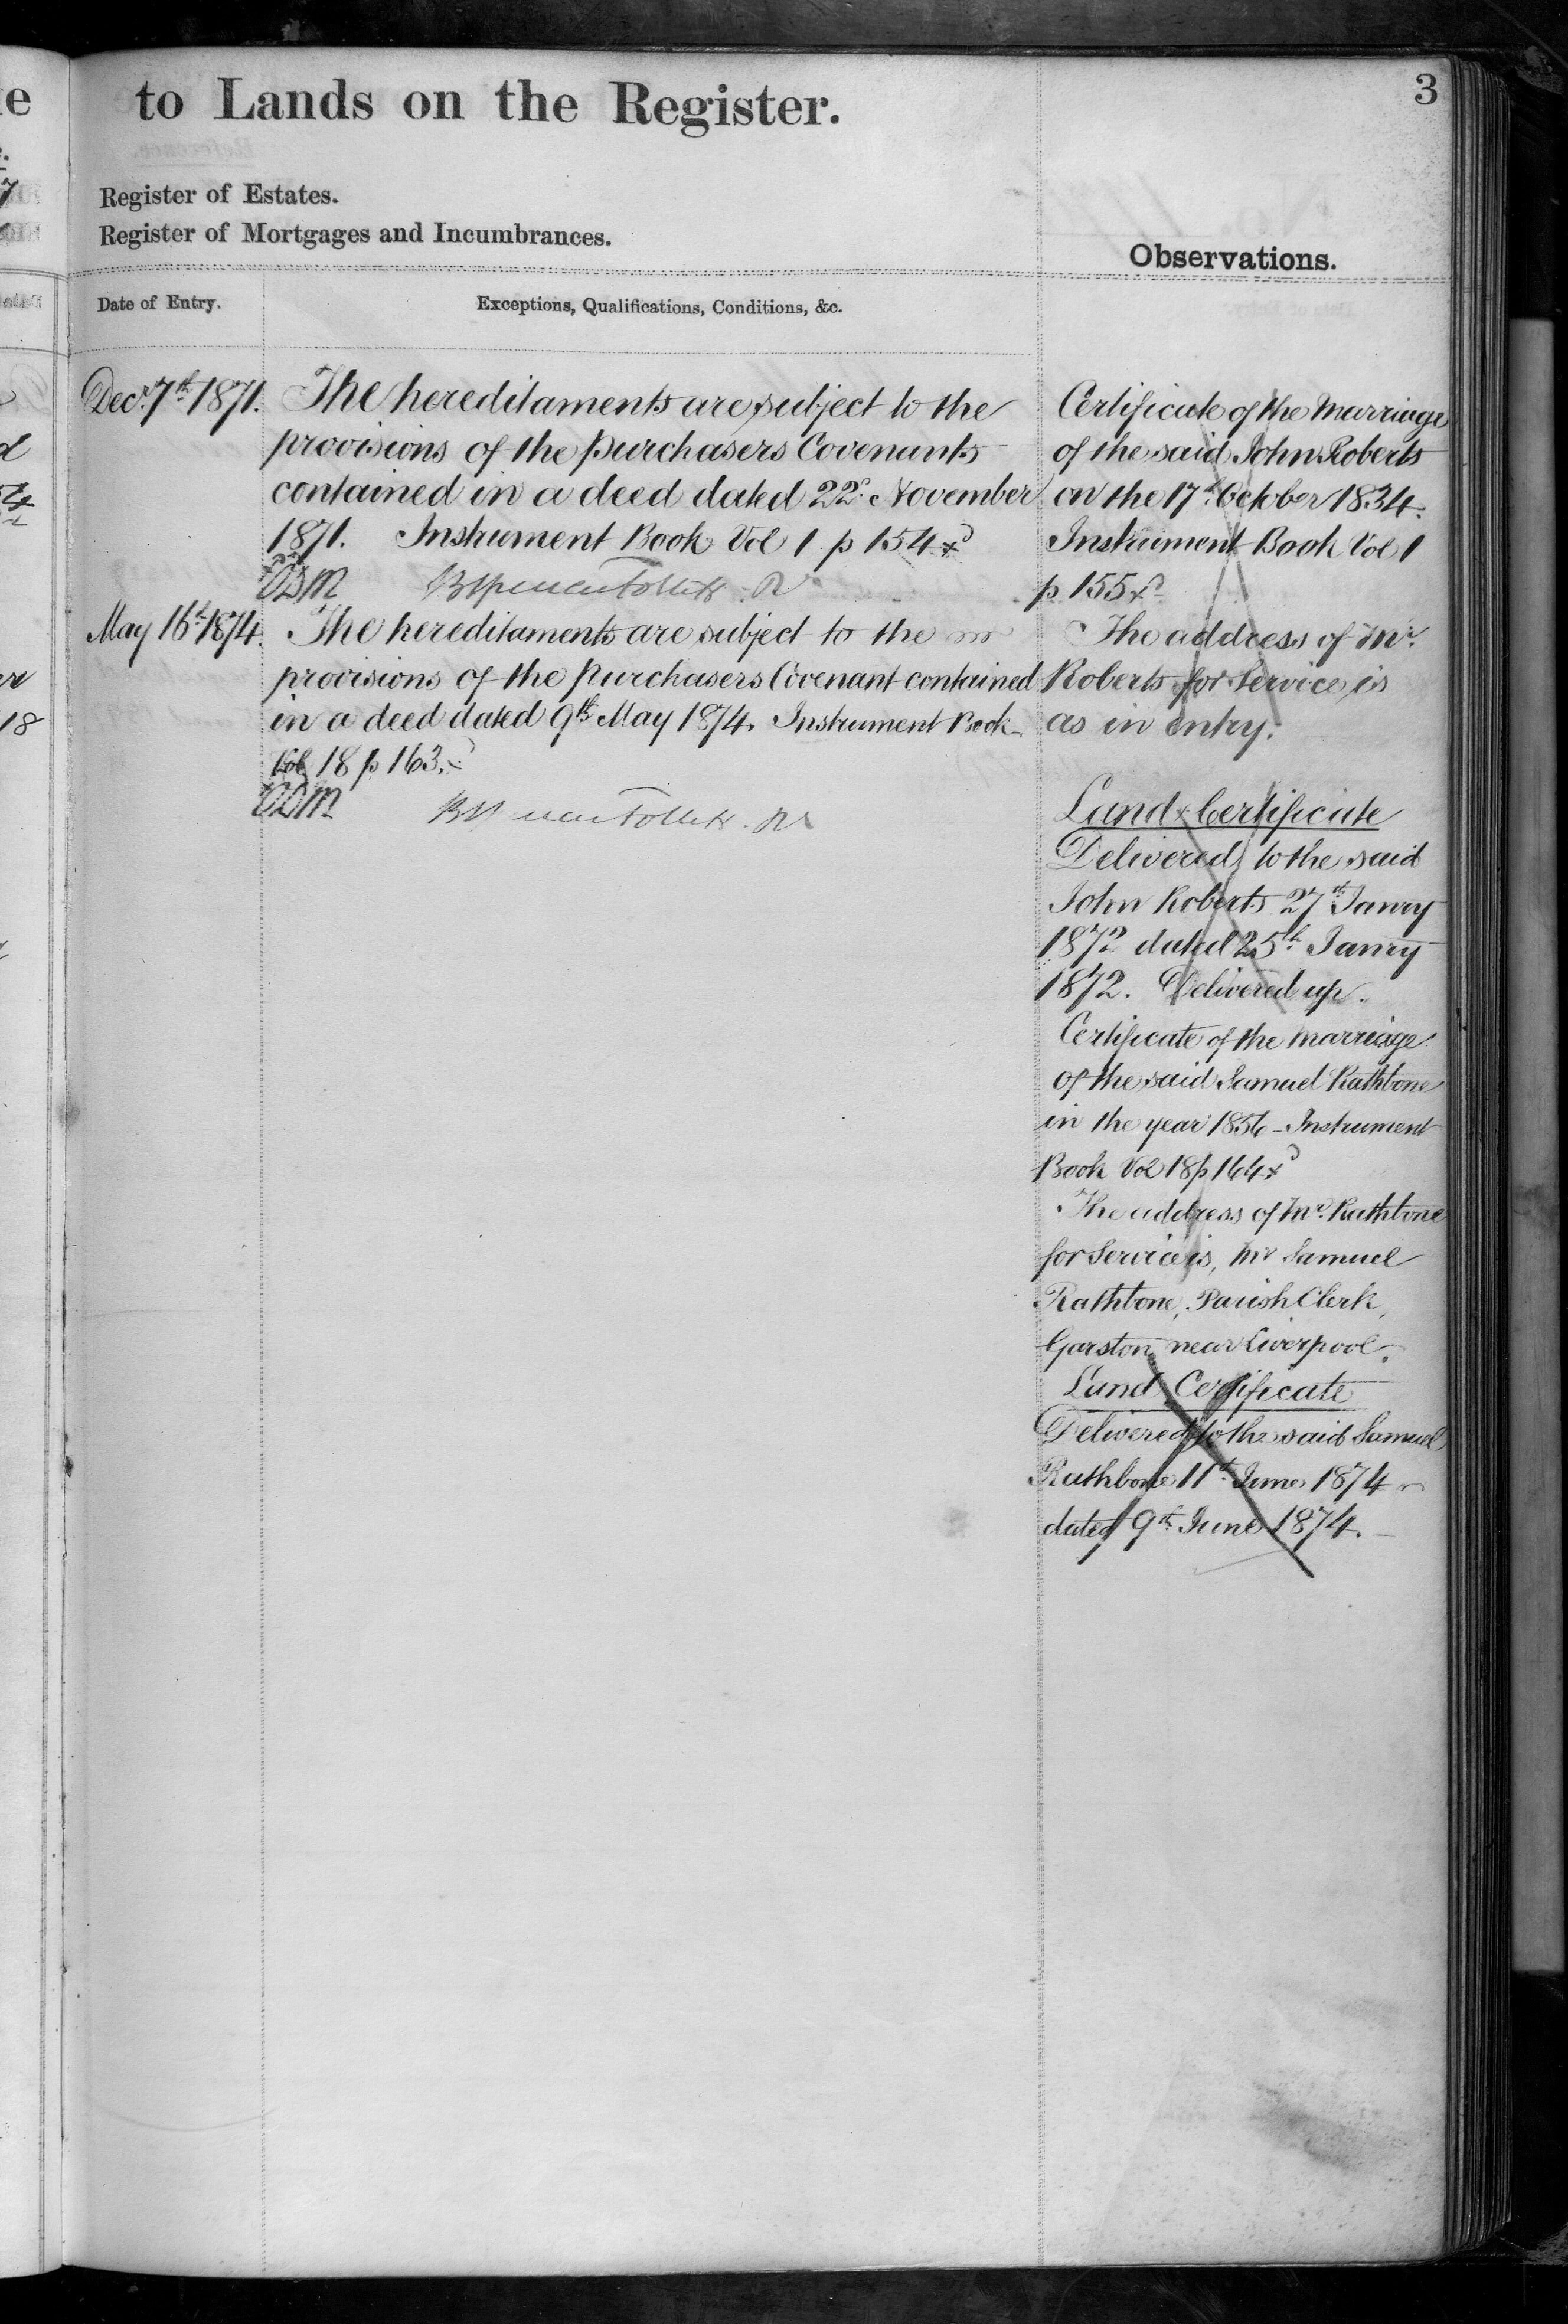 to Lands on the Register.
3
Register of Estates.
Register of Mortgages and Incumbrances.
Observations.
Date of Entry.
Exceptions, Qualifications, Conditions, &c.
Decr. 7th 1871.
The hereditaments are subject to the
provisions of the purchasers Covenants
contained in a deed dated 22d November
1871. Instrument Book Vol 1 p 154
May 16th 1874.
The hereditaments are subject to the
provisions of the purchasers Covenant contained
in a deed dated 9th May 1874. Instrument Book
Vol 18 p 163.
Certificate of the Marriage
of the said John Roberts
on the 17th October 1834.
Instrument Book Vol 1
p 155
The address of Mr.
Roberts for Service is
as in entry.
Land Certificate
Delivered to the said
John Roberts 27th Janry
1872 dated 25th Janry
1872. Delivered up.
Certificate of the Marriage
of the said Samuel Rathbone
in the year 1856 - Instrument
Book Vol 18 p 164
The address of Mr. Rathbone
for Service is, Mr Samuel
Rathbone, Parish Clerk,
Garston near Liverpool.
Land Certificate
Delivered to the said Samuel
Rathbone 11th June 1874
dated 9th June 1874.